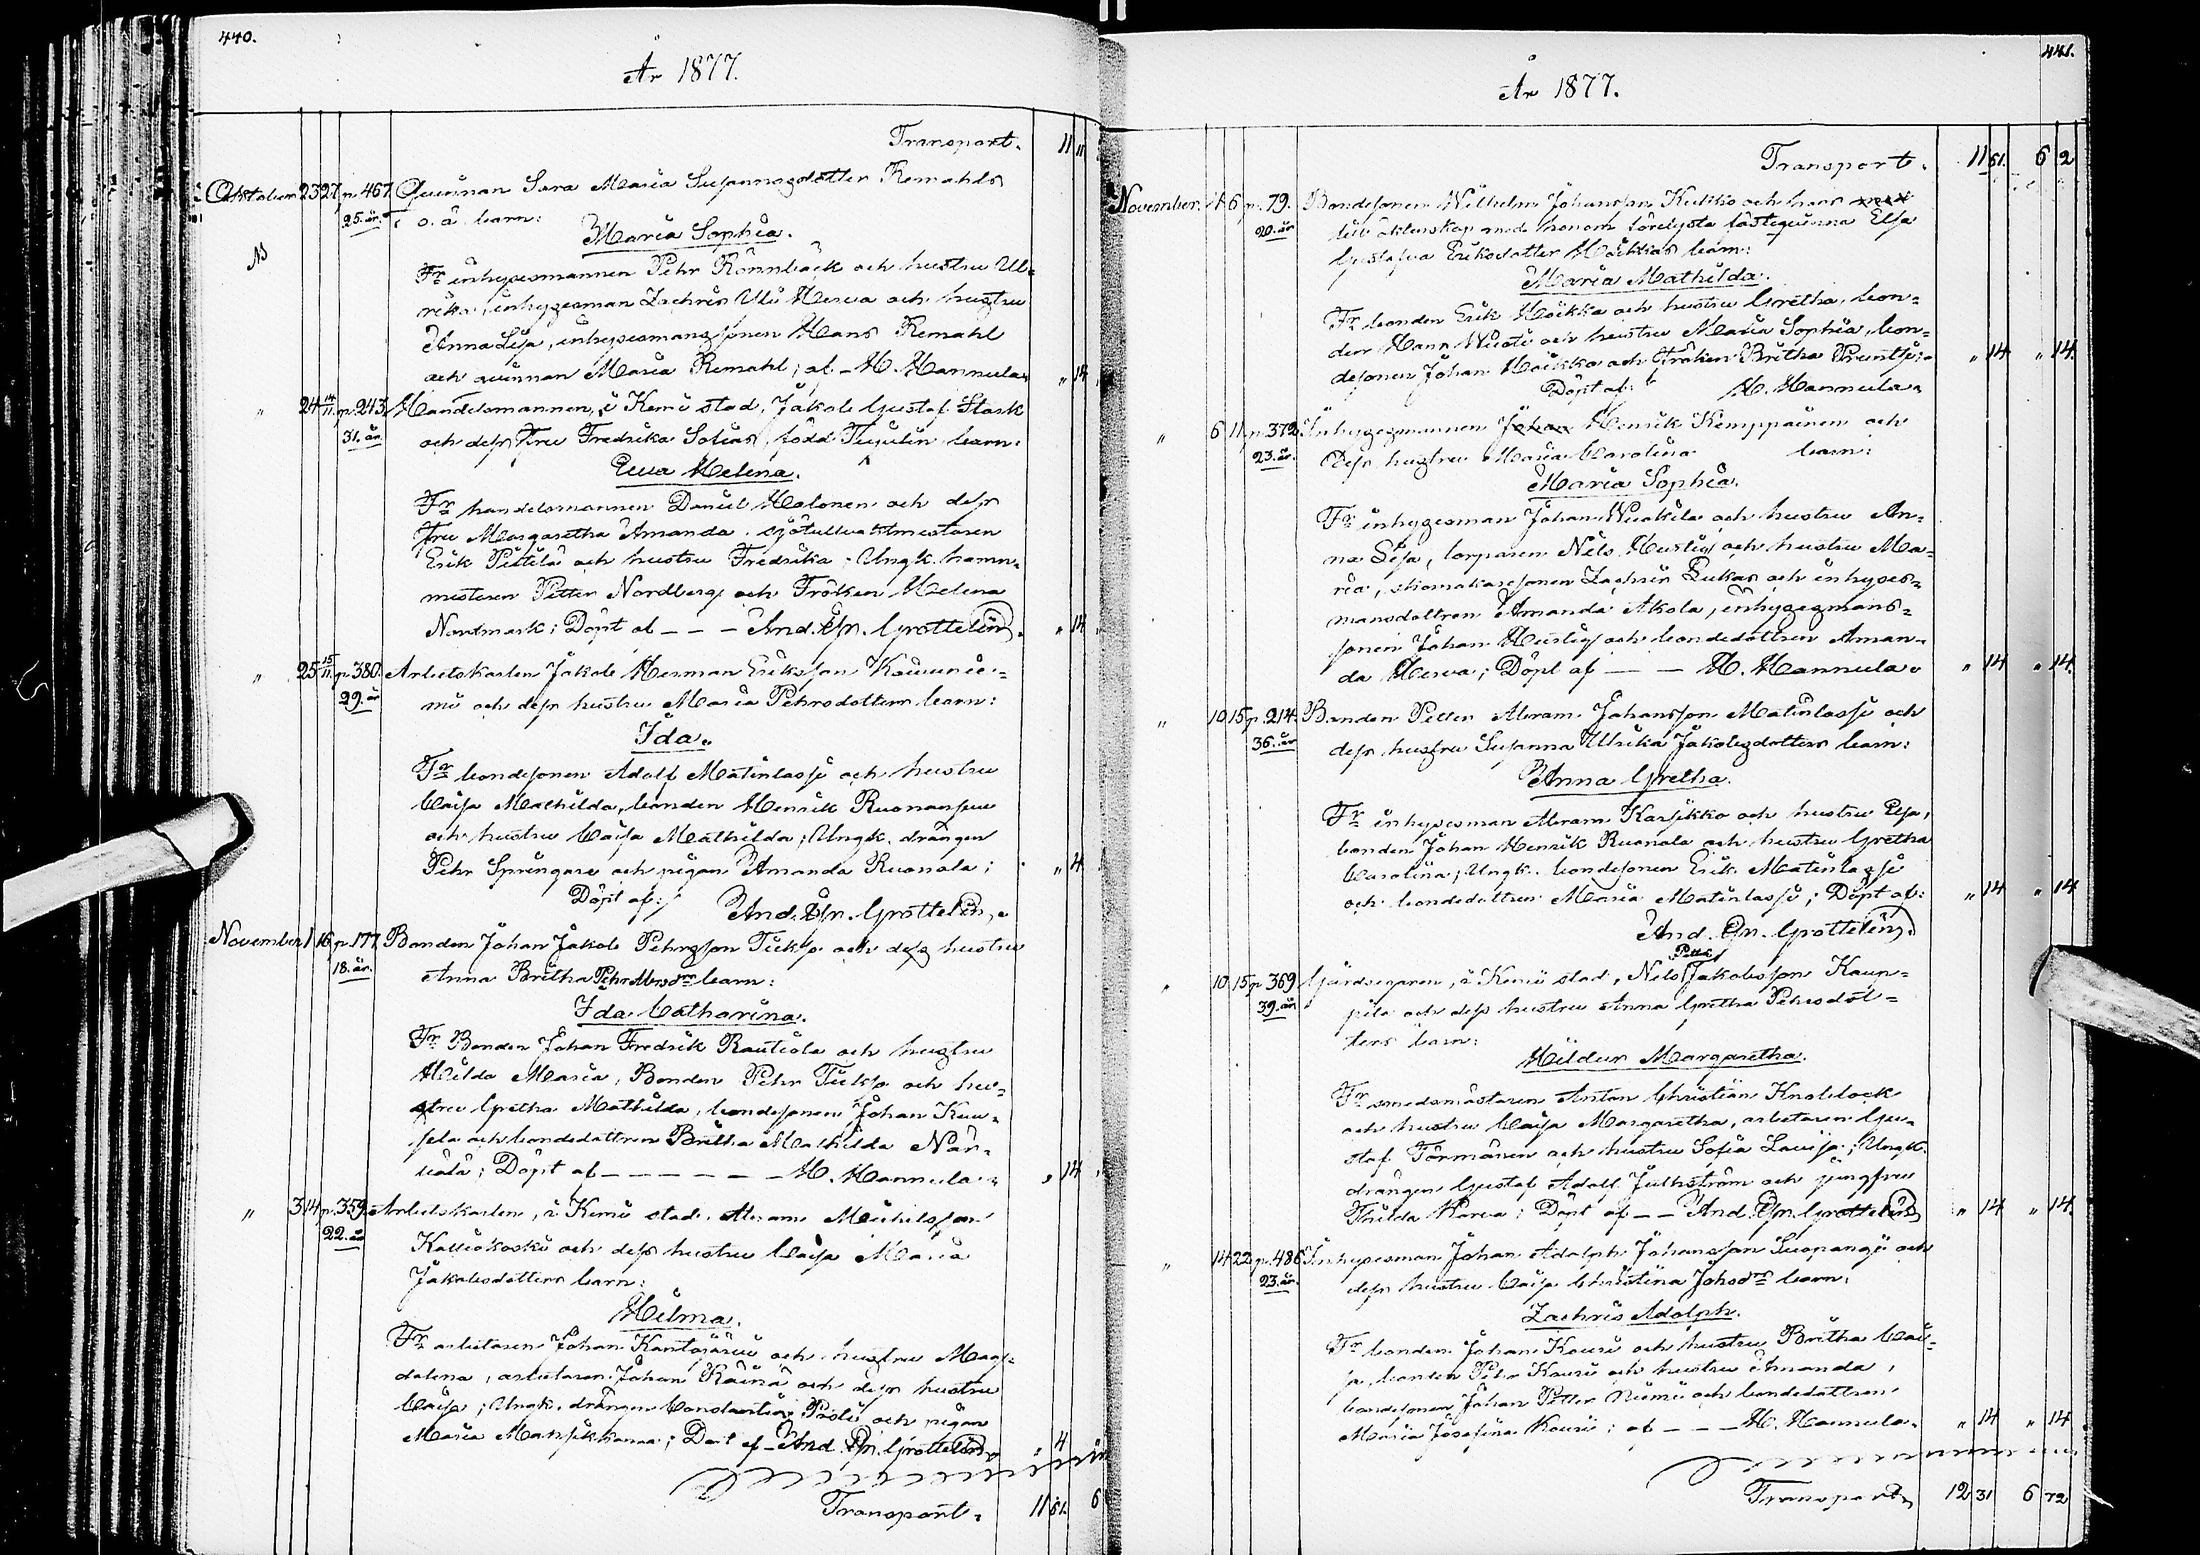 440.
År 1877.
Transport. 11 11
Oktober 23 27 p. 467. Qvinnan Sara Maria Susannasdotter Remahls
25. år. o. ä. barn:
Maria Sophia.
Fr inhysesmannen Pehr Rönnbäck och hustru Ul-
rika, inhysesman Zachris Uli Herva och hustru
Anna Lisa, inhysesmanssonen Hans Remahl
och qvinnan Maria Remahl; af – H. Hannula. " 14
" 24 14/11 p. 243. Handelsmannen, i Kemi stad, Jakob Gustaf Stark
31. år. och dess Fru Fredrika Sofia, född barn:
Eva Helena.
Fr handelsmannen Daniel Halonen och dess
Fru Margaretha Amanda, sjötullvaktmästaren
Erik Pittilä och hustru Fredrika; Ungk. hamn-
mästaren Petter Nordberg och Fröken Helena
Nordmark; Döpt af – – – And. Ex. Grottelin. " 14
" 25 15/11 p. 380. Arbetskarlen Jakob Herman Eriksson Kouvunie-
29. år mi och dess hustru Maria Pehrsdotters barn:
Ida.
Fr bondesonen Adolf Matinlassi och hustru
Caisa Mathilda, bonden Henrik Ruonansuu
och hustru Caisa Mathilda; Ungk. drängen
Pehr Springare och pigan Amanda Ruonala; " 4
Döpt af: And. Ex. Grottelin.
November 1 16 p. 177. Bonden Johan Jakob Pehrsson Tikso och dess hustru
18. år. Anna Britha Pehrsdrs barn:
Ida Catharina.
Fr Bonden Johan Fredrik Rautiola och hustru
Hilda Maria, Bonden Pehr Tikso och hu-
stru Gretha Mathilda, bondesonen Johan Kuu-
sela och bondedottren Britha Mathilda När-
; Döpt af – – – – – – H. Hannula. " 14
" 3 14 p. 359. Arbetskarlen, i Kemi stad, Abram Michelsson
22. år Kalliokoski och dess hustru Caisa Maria
Jakobsdotters barn:
Hilma.
Fr arbetaren Johan Kantojärvi och hustru Mag-
dalena, arbetaren Johan Käinä och dess hustru
Caisa; Ungk. drängen Constantin och pigan
Maria ; Döpt af – And. Ex. Grottelin " 4
Transport. 11 51. 6
441.
År 1877.
Transport. 11 51. 6 2
November. 4 6 p. 79. Bondesonen Wilhelm Johansson Kukko och hans
20. år äktenskap med honom förlofda fästeqvinna Elsa
Gustafva Eriksdotter Hoikkas barn:
Maria Mathilda.
Fr bonden Erik Hoikka och hustru Gretha, bon-
den Hans och hustru Maria Sophia, bon-
desonen Johan Hoikka och Fröken Britha " 14 " 14.
Döpt af: H. Hannula.
" 6 11 p. 372. Inhysesmannen Johan Henrik Kemppainen och
23. år. Dess hustru Maria Carolina barn:
Maria Sophia.
Fr inhysesman Johan och hustru An-
na Lisa, torparen Nils och hustru Ma-
ria, skomakaresonen Zachris Lukas och inhyses-
mansdottren Amanda Akola, inhysesmans-
sonen Johan och bondedottren Aman-
da Herva; Döpt af – – H. Hannula. " 14 " 14.
" 10 15 p. 214. Bonden Petter Abram Johansson Matinlassi och
36. år dess hustru Susanna Ulrika Jakobsdotters barn:
Anna Gretha.
Fr inhysesman Abram Karsikko och hustru Elsa,
bonden Johan Henrik Ruonala och hustru Gretha
Carolina; Ungk. bondesonen Erik Matinlassi
och bondedottren Maria Matinlassi; Döpt af: " 14 " 14
And. Ex. Grottelin.
" 10 15 p 369 Gårdsegaren, i Kemi stad, Nils Jakobsson Kaup-
39. år pila och dess hustru Anna Gretha Pehrsdot-
ters barn:
Hildur Margaretha.
Fr smedsmästaren Anton Christian Knoblock
och hustru Caisa Margaretha, arbetaren Gu-
staf Förmänen och hustru Sofia Lovisa; Ungk.
drängen Gustaf Adolf Julhström och jungfru
Thilda ; Döpt af – – And. Ex. Grottelin " 14 " 14.
" 14 22 p. 486 Inhysesman Johan Adolph Johansson Suopangi och
23. år. dess hustru Caisa Christina Johsdrs barn:
Zachris Adolph.
Fr bonden Johan Kouri och hustru Britha Cai-
sa, bonden Pehr Kouri och hustru Amanda,
bondesonen Johan Petter Niemi och bondedottren
Maria Josefina Kouri; af – – – H. Hannula. " 14 " 14
Transport 12 31 6 72